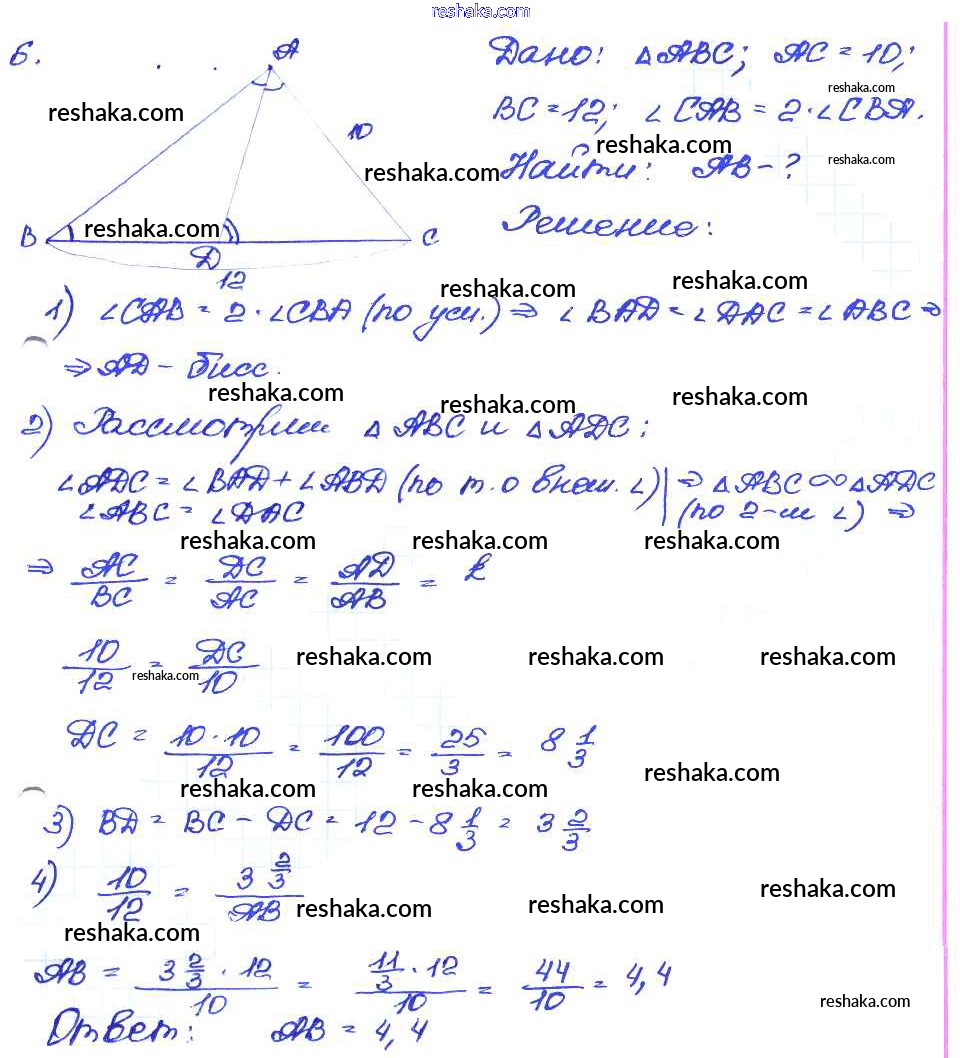 reshaka.com
6.
A
B
C
D
10
12
Дано: △ABC; AC = 10;
BC = 12; ∠CAB = 2·∠CBA.
Найти: AB - ?
Решение:
1) ∠CAB = 2·∠CBA (по усл.) ⇒ ∠BAD = ∠DAC = ∠ABC ⇒
⇒ AD - бисс.
2) Рассмотрим △ABC и △ADC:
∠ADC = ∠BAD + ∠ABD (по т. о внеш. ∠) | ⇒ △ABC ∞ △ADC
∠ABC = ∠DAC | (по 2-м ∠) ⇒
⇒ AC/BC = DC/AC = AD/AB = k
10/12 = DC/10
DC = 10·10/12 = 100/12 = 25/3 = 8 1/3
3) BD = BC - DC = 12 - 8 1/3 = 3 2/3
4) 10/12 = 3 2/3 / AB
AB = 3 2/3 · 12 / 10 = 11/3 · 12 / 10 = 44/10 = 4,4
Ответ: AB = 4,4
reshaka.com